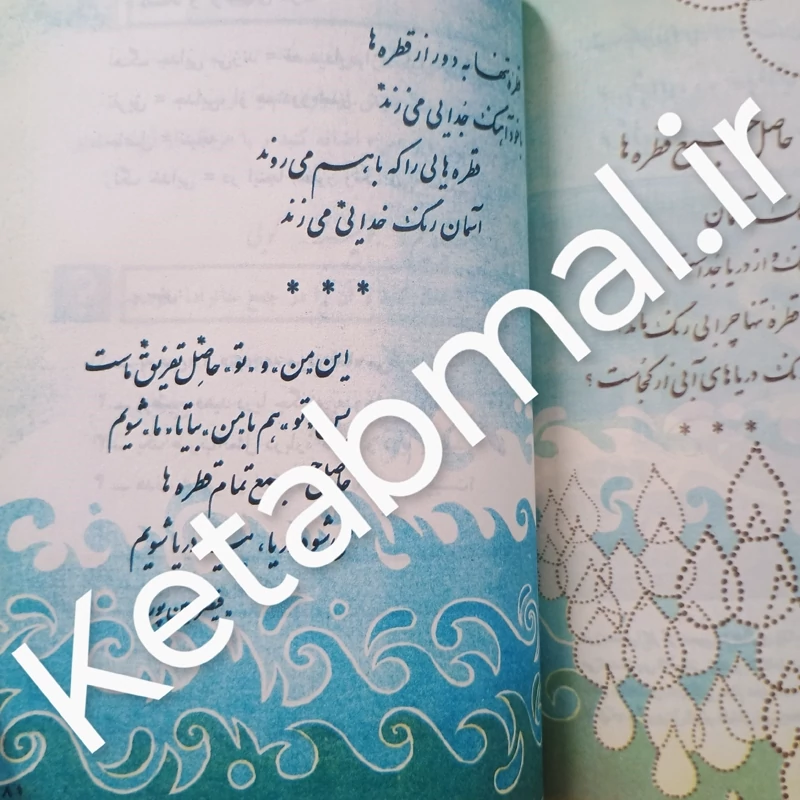 حاصل جمع قطره ها
آسمان
و از دریا جداست
قطره تنها چرا بی رنگ ماند
رنگ دریاهای آبی از کجاست ؟
* * *
قطره تنها به دور از قطره ها
با خود آهنگ جدایی می زند
قطره هایی را که با هم می روند
آسمان رنگ خدایی* می زند
* * *
این "من" و "تو" حاصل تفریق* ماست
پس "تو" هم با "من" بیا تا "ما" شویم
حاصل جمع تمام قطره ها
دریا، دریا شویم
۸۱
Ketabmal.ir